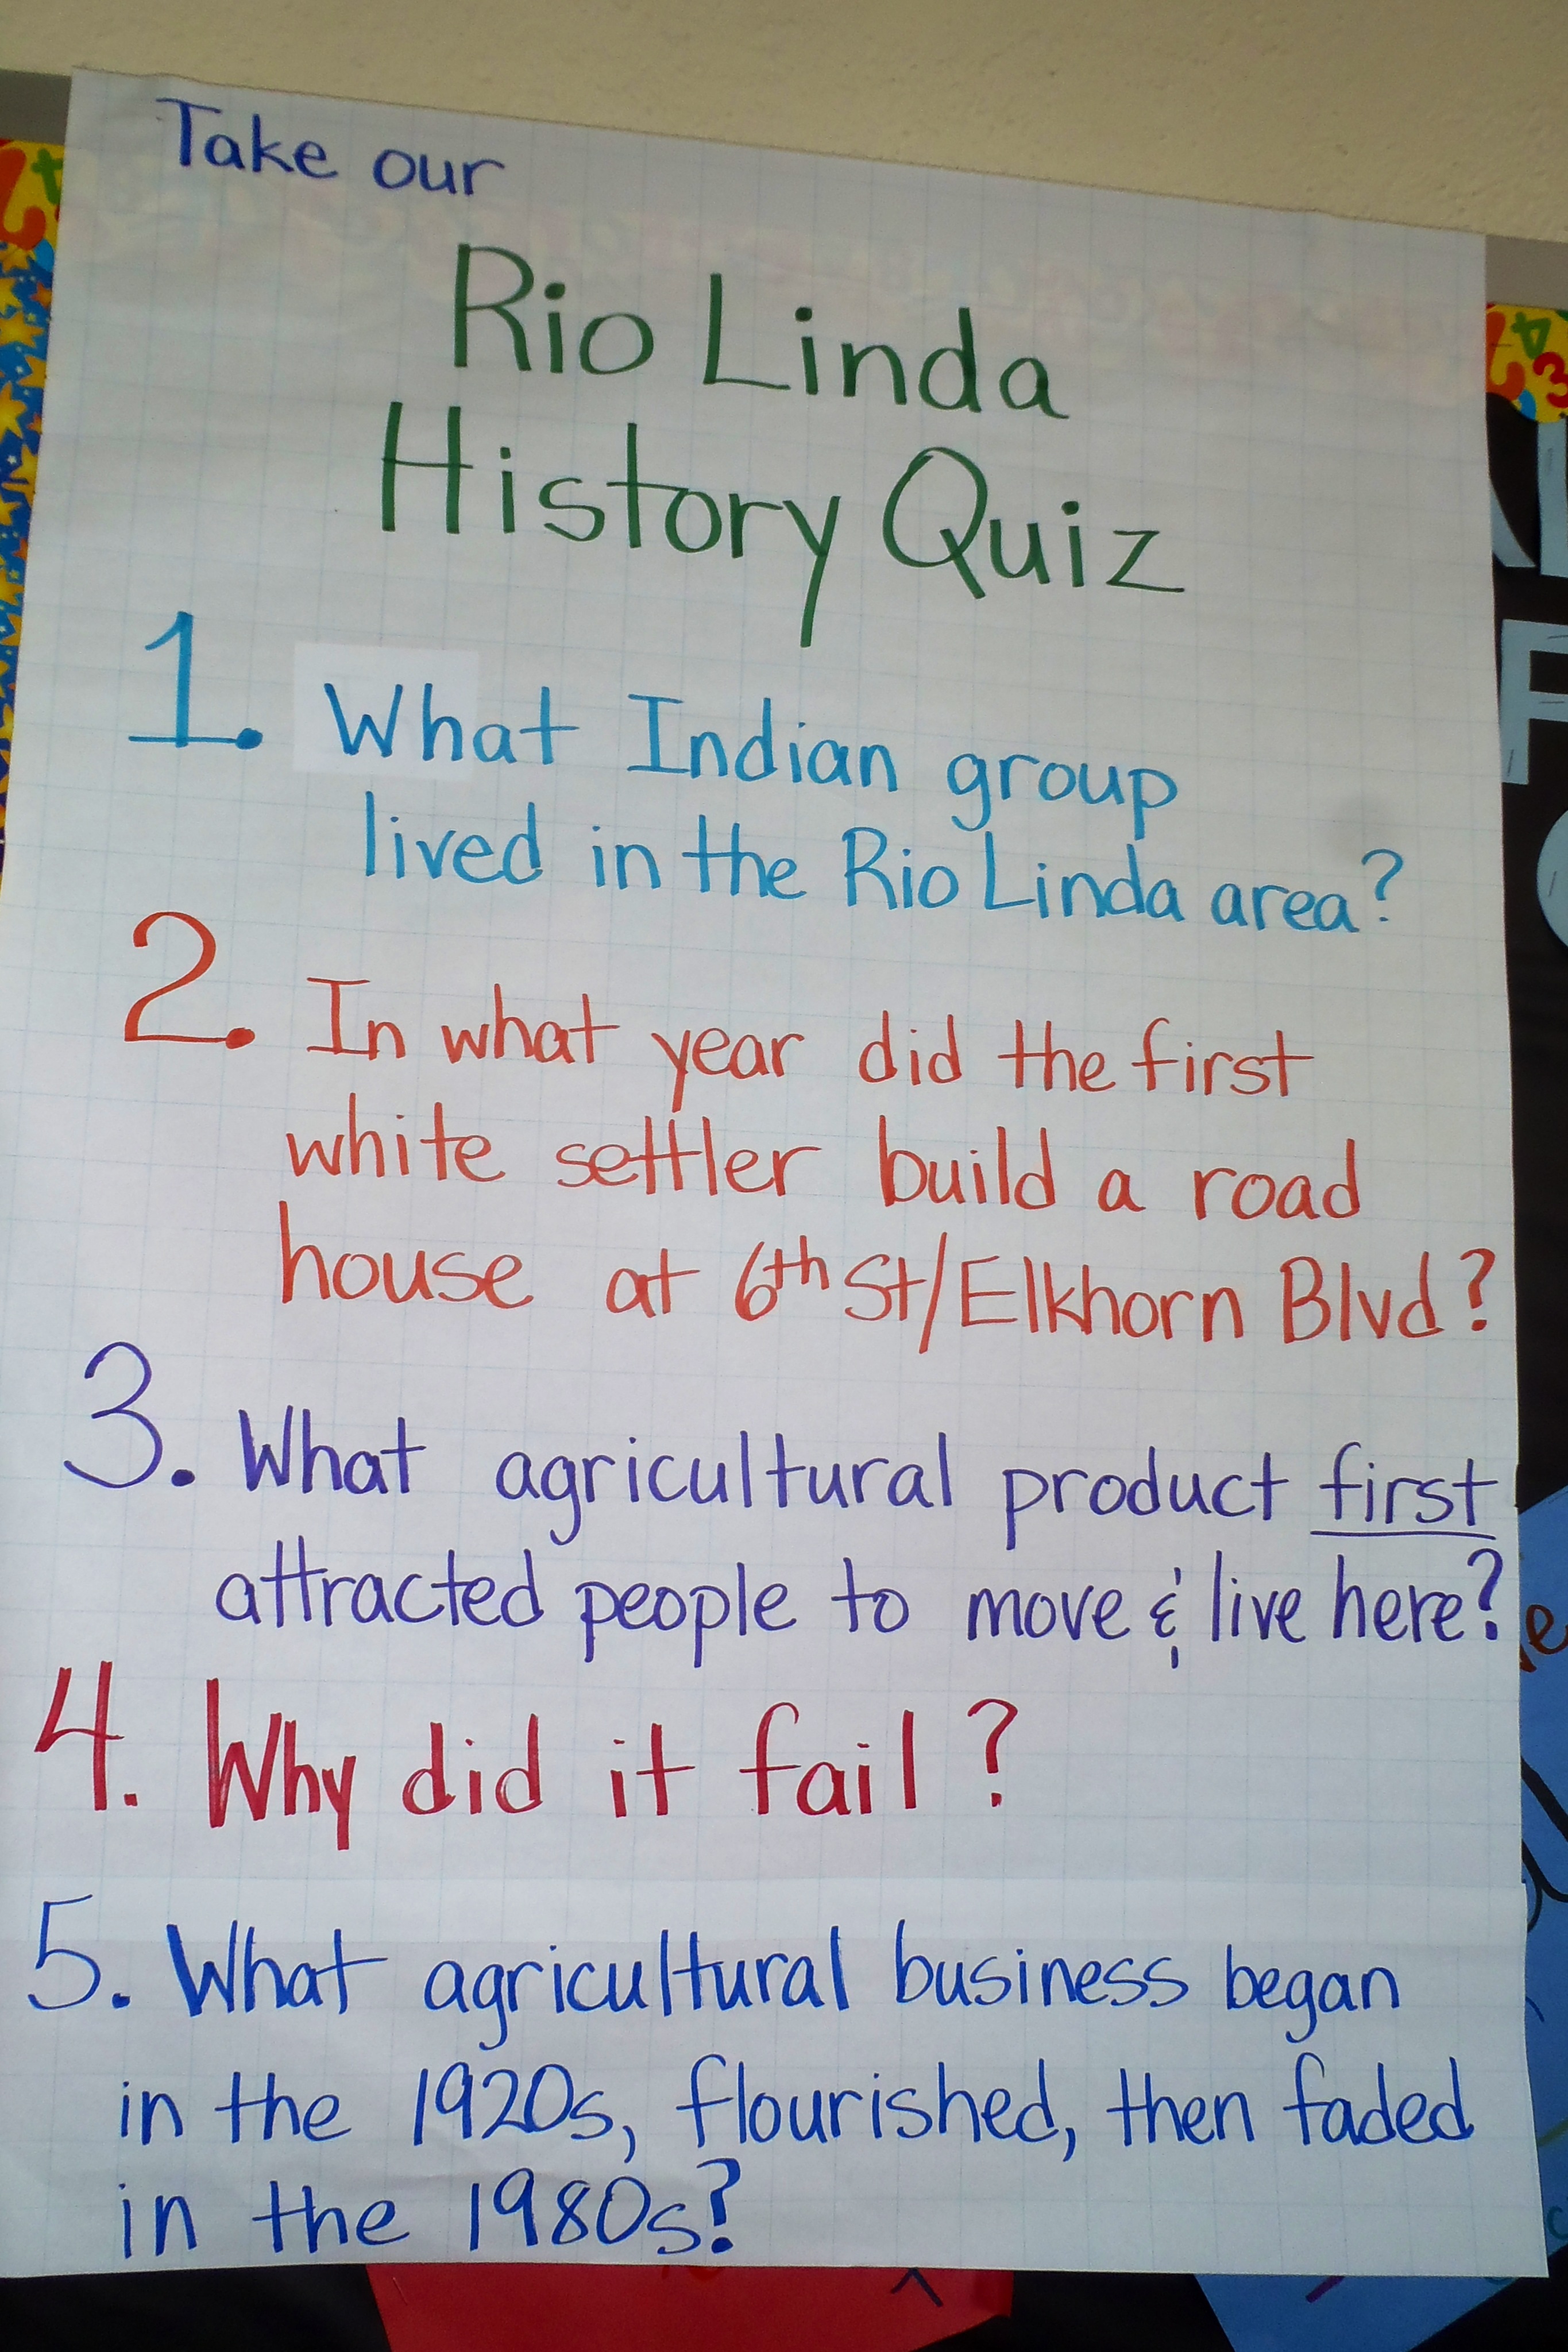 Take our
Rio Linda
History Quiz
1. What Indian group
lived in the Rio Linda area?
2. In what year did the first
white settler build a road
house at 6th St/Elkhorn Blvd?
3. What agricultural product first
attracted people to move & live here?
4. Why did it fail?
5. What agricultural business began
in the 1920s, flourished, then faded
in the 1980s?